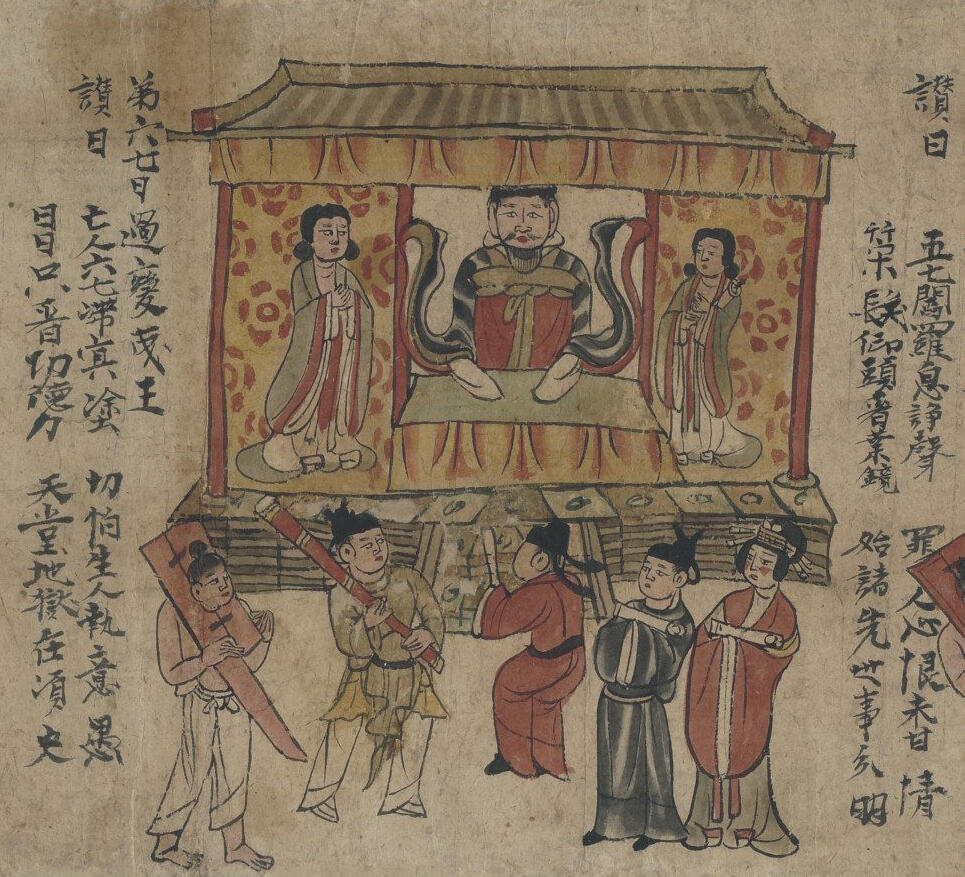 讃曰 五七閻羅息諍聲 罪人心恨未甘情
策髮仰頭看業鏡 始諸先世事分明
弟六七日過變成王
讃曰 亡人六七滯冥塗 切怕生人執意愚
日日只看功德力 天堂地獄在湏臾